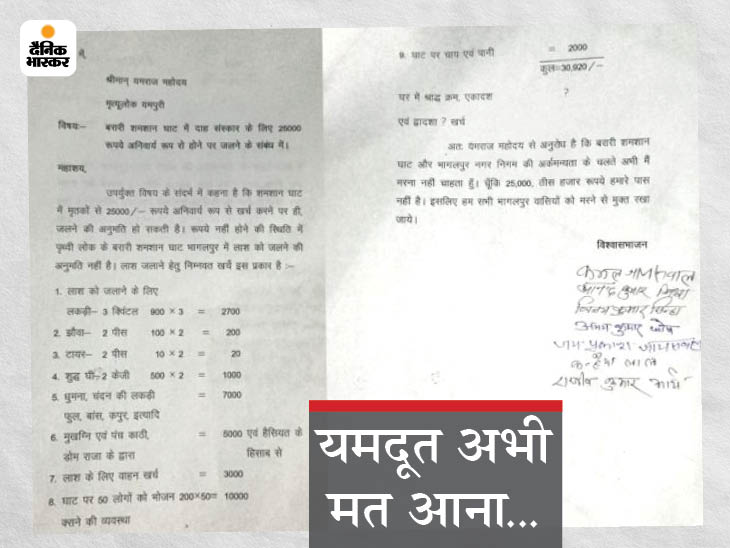 दैनिक
भास्कर
में,
श्रीमान् यमराज महोदय
मृत्यूलोक यमपुरी
विषयः– बरारी शमशान घाट में दाह संस्कार के लिए 25000
रूपये अनिवार्य रूप से होने पर जलने के संबंध में।
महाशय,
उपर्युक्त विषय के संदर्भ में कहना है कि शमशान घाट
में मृतकों से 25000/– रूपये अनिवार्य रूप से खर्च करने पर ही,
जलने की अनुमति हो सकती है। रूपये नहीं होने की स्थिति में
पृथ्वी लोक के बरारी शमशान घाट भागलपुर में लाश को जलने की
अनुमति नहीं है। लाश जलाने हेतु निम्नवत खर्च इस प्रकार है :–
1. लाश को जलाने के लिए
लकड़ी– 3 क्विंटल 900 × 3 = 2700
2. झौवा– 2 पीस 100 × 2 = 200
3. टायर– 2 पीस 10 × 2 = 20
4. शुद्ध घी– 2 केजी 500 × 2 = 1000
5. धुमना, चंदन की लकड़ी = 7000
फुल, बांस, कपुर, इत्यादि
6. मुखग्नि एवं पंच काठी, = 5000 एवं हैसियत के
डोम राजा के द्वारा हिसाब से
7. लाश के लिए वाहन खर्च = 3000
8. घाट पर 50 लोगों को भोजन 200×50= 10000
कराने की व्यवस्था
9. घाट पर चाय एवं पानी = 2000
कुल=30,920/–
घर में श्राद्ध क्रम, एकादश ?
एवं द्वादशा ? खर्च
अतः यमराज महोदय से अनुरोध है कि बरारी शमशान
घाट और भागलपुर नगर निगम की अर्कमन्यता के चलते अभी मैं
मरना नहीं चाहता हुँ। चूँकि 25,000, तीस हजार रूपये हमारे पास
नहीं है। इसलिए हम सभी भागलपुर वासियों को मरने से मुक्त रखा
जाये।
विश्वासभाजन
कमल जायसवाल
कुमार
विजय कुमार सिन्हा
अभय कुमार घोष
जय प्रकाश जायसवाल
कन्हैया लाल
राजीव कुमार
यमदूत अभी
मत आना...